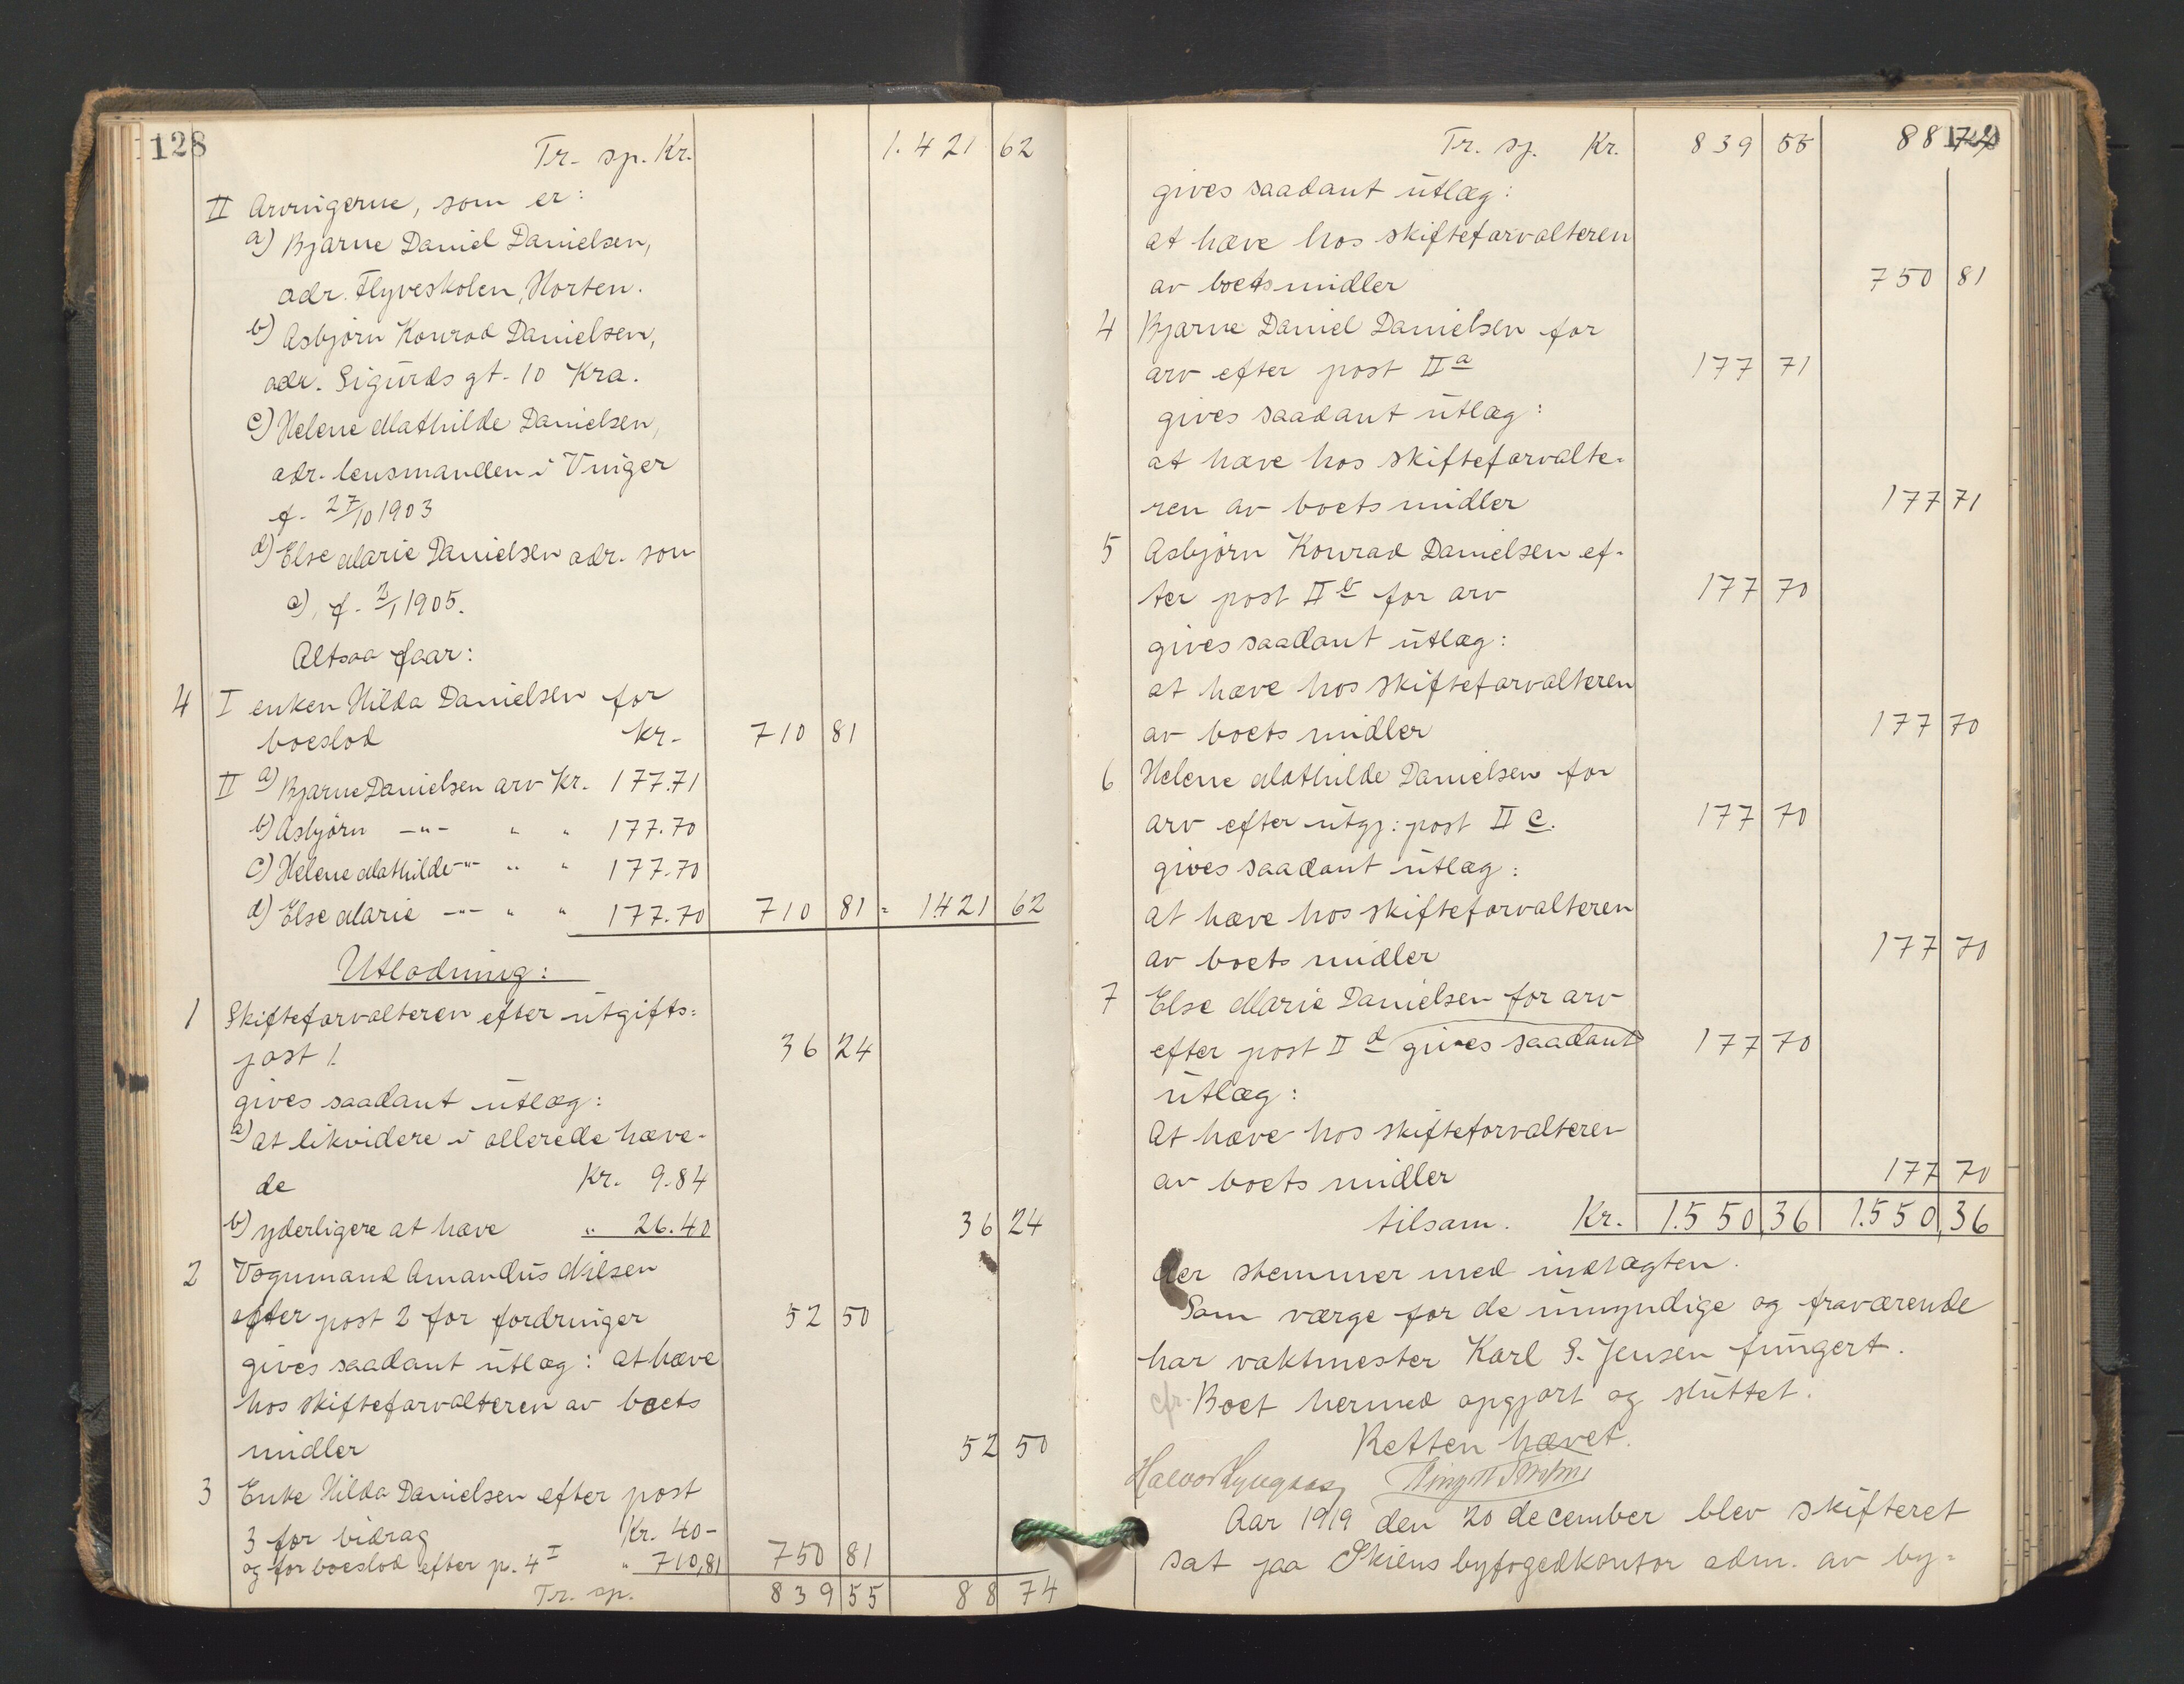 128
Tr. sp. Kr. 1.421 62
II Arvingerne, som er:
a) Bjarne Daniel Danielsen,
adr. Flyveskolen, Horten.
b) Asbjørn Konrad Danielsen,
adr. Sigurds gt. 10 Kra.
c) Helene Mathilde Danielsen,
adr. lensmanden i Vinger
f. 27/10 1903
d) Else Marie Danielsen adr. som
c), f. 2/1 1905.
Altsaa faar:
4 I enken Hilda Danielsen for
boeslod Kr. 710 81
II a) Bjarne Danielsen arv Kr. 177.71
b) Asbjørn -"- " " 177.70
c) Helene Mathilde -"- " " 177.70
d) Else Marie -"- " " 177.70 710 81 = 1421 62
Utlodning:
1 Skifteforvalteren efter utgifts=
post 1. 36 24
gives saadant utlæg:
a) at likvidere i allerede hæve-
de Kr. 9.84
b) yderligere at hæve " 26.40 36 24
2 Vognmand Amandus Nilsen
efter post 2 for fordringer 52 50
gives saadant utlæg: at hæve
hos skifteforvalteren av boets
midler 52 50
3 Enke Hilda Danielsen efter post
3 for bidrag Kr. 40-
og for boeslod efter p. 4 I " 710,81 750 81
Tr. sp. 839 55 88 74
Tr. sp. Kr. 839 55 88 74
gives saadant utlæg:
at hæve hos skifteforvalteren
av boets midler 750 81
4 Bjarne Daniel Danielsen for
arv efter post II a 177 71
gives saadant utlæg:
at hæve hos skifteforvalte-
ren av boets midler 177 71
5 Asbjørn Konrad Danielsen ef-
ter post II b for arv 177 70
gives saadant utlæg:
at hæve hos skifteforvalteren
av boets midler 177 70
6 Helene Mathilde Danielsen for
arv efter utgj: post II c. 177 70
gives saadant utlæg:
at hæve hos skifteforvalteren
av boets midler 177 70
7 Else Marie Danielsen for arv
efter post II d gives saadant 177 70
utlæg:
At hæve hos skifteforvalteren
av boets midler 177 70
tilsam. Kr. 1.550,36 1.550,36
der stemmer med indtægten.
Som værge for de umyndige og fraværende
har vaktmester Karl S. Jensen fungert.
cfr. Boet hermed opgjort og sluttet.
Retten hævet.
Halvor
Aar 1919 den 20 december blev skifteret
sat paa Skiens byfogedkontor adm. av by=